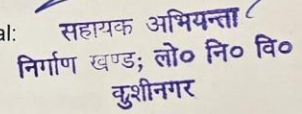 al: सहायक अभियन्ता
निर्माण खण्ड; लो० नि० वि०
कुशीनगर